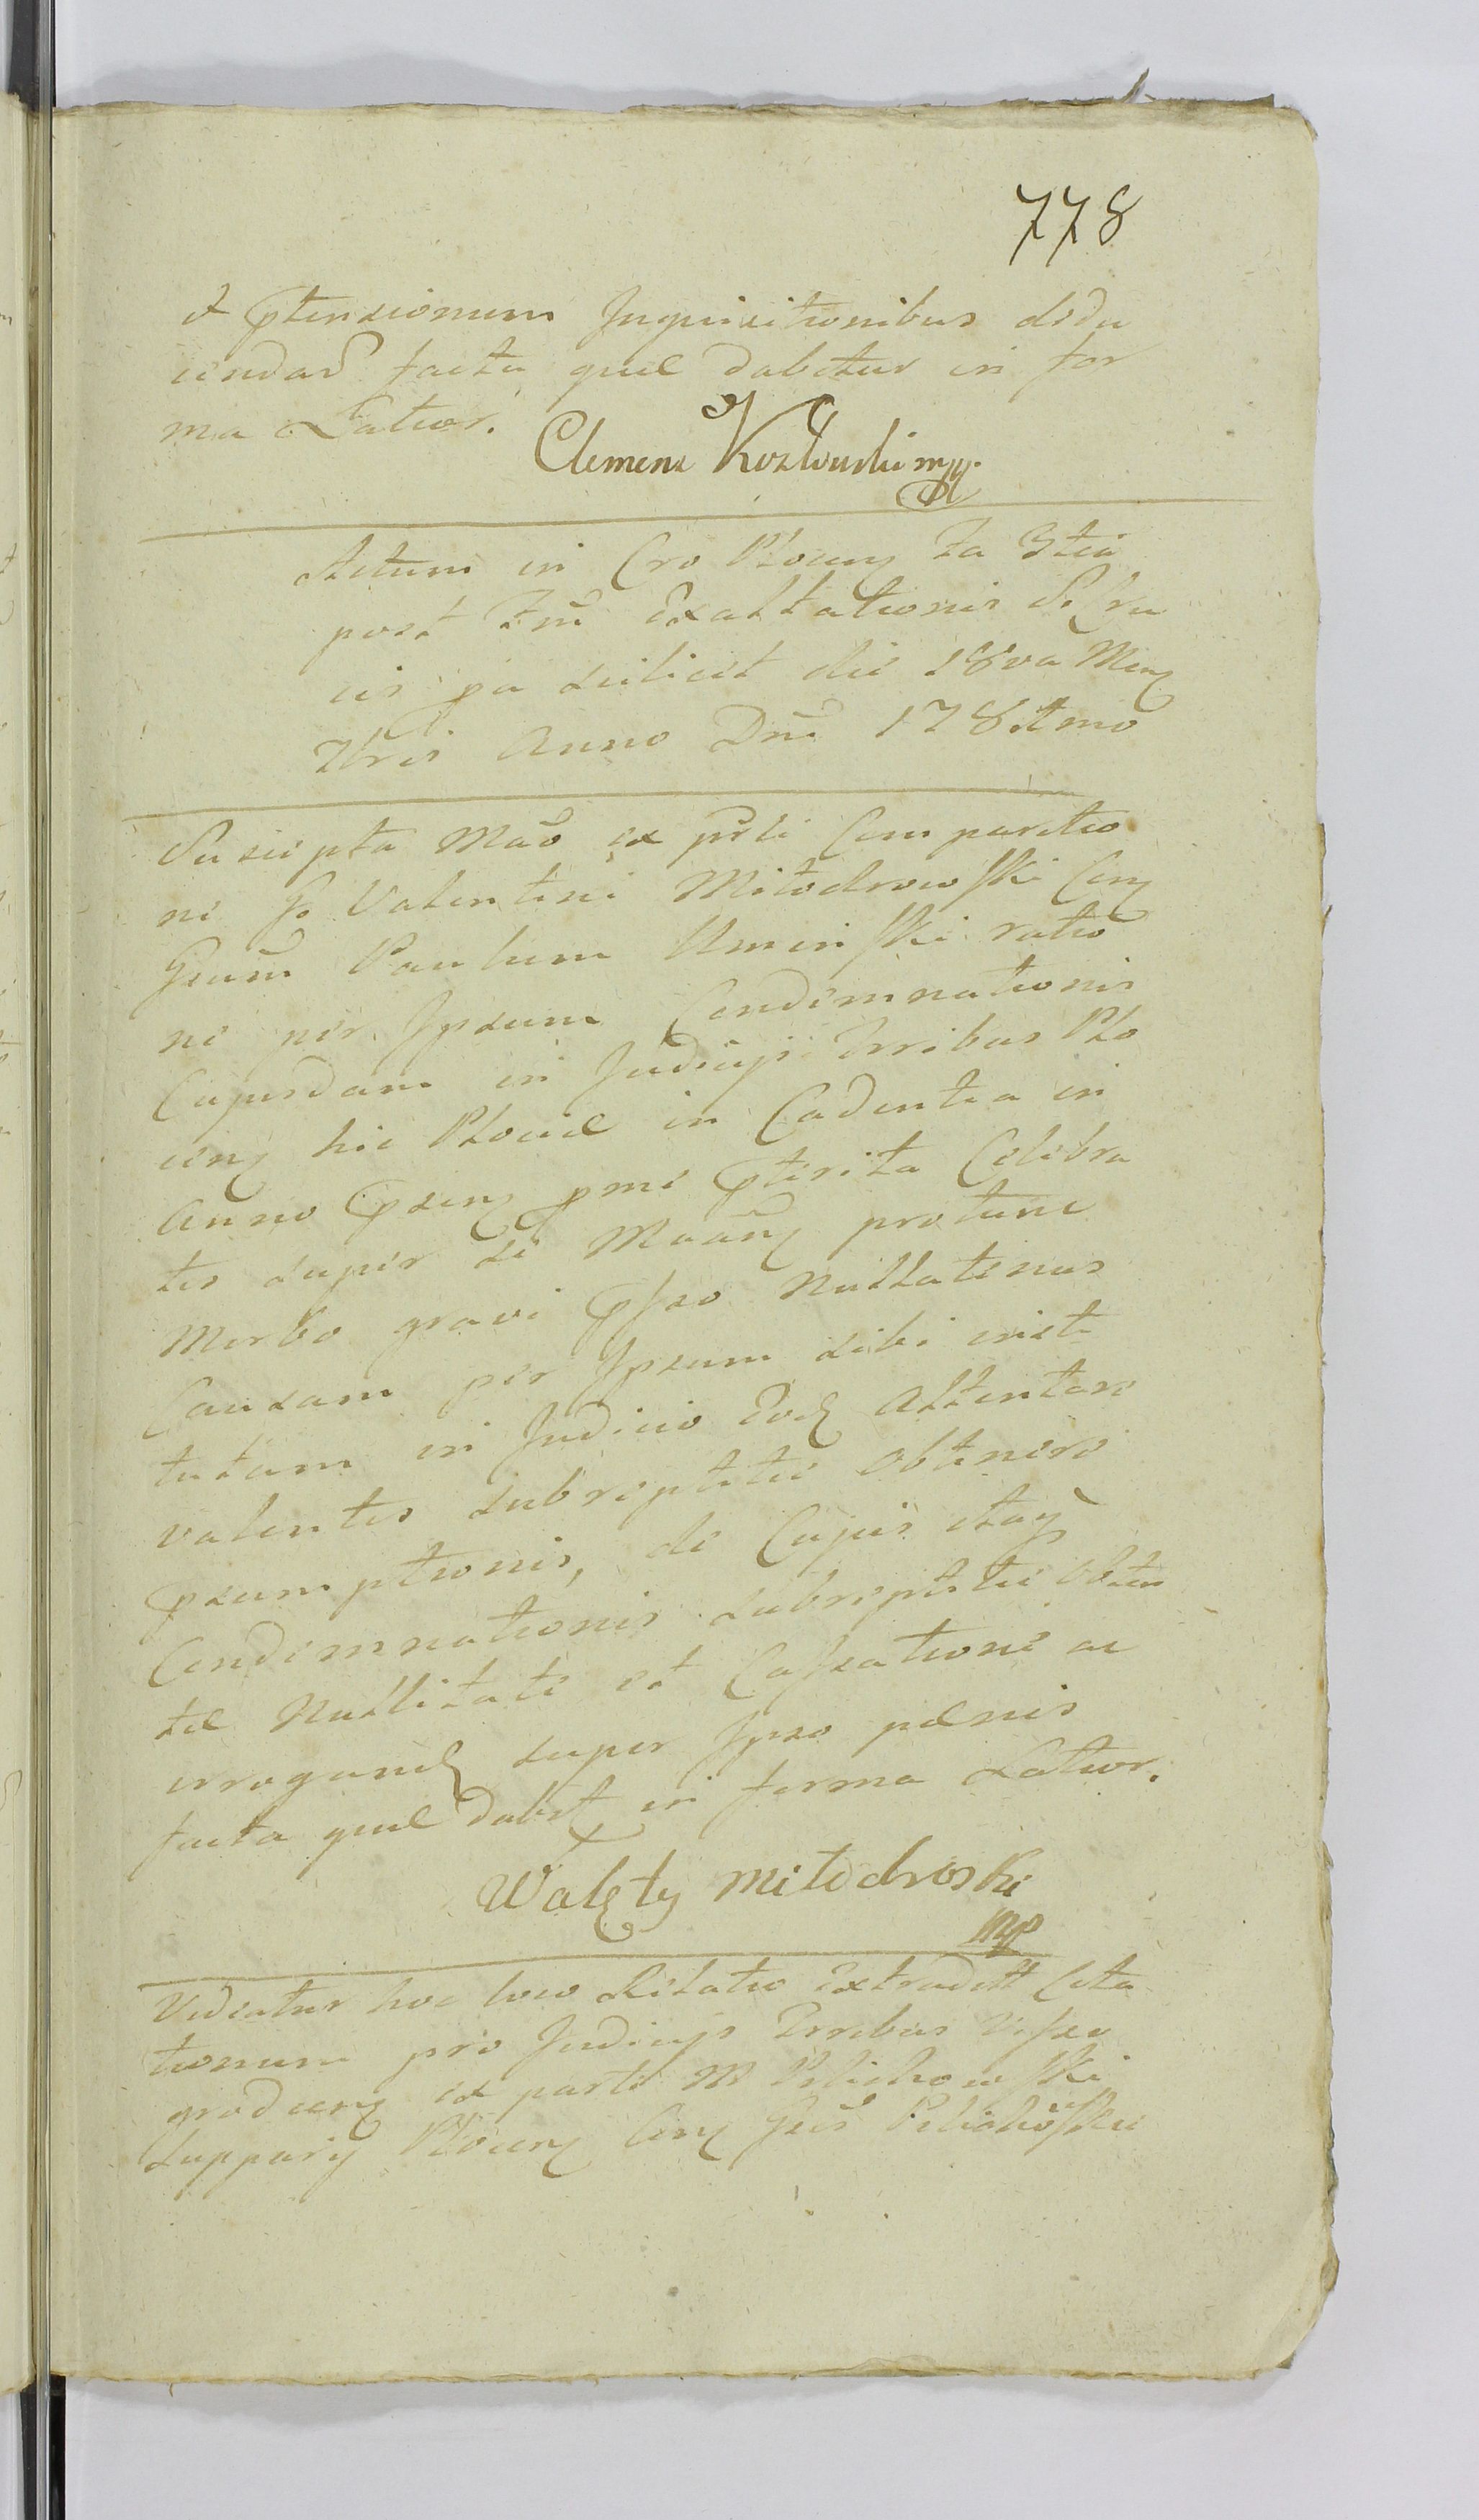 778
et ptensionum Inquisitionibus dedu
cendar facta quæ dabetur in for
ma Latior.
Clemens Kozłowski mp
Actum in Cro Plocen Fa 3tia
post Fm Exaltationis S. Cru
cis pa scilicet die 18va Men
7bris Anno Dni 178
Suscepta Mão ex prsti Comparitio
ne G Valentini Miłodrowski Con
Gsum Paulum Uminski ratio
ne per Ipsum Condemnationis
Cujusdam in Judicijs Trribus Plo
cen hic Plociæ in Cadentia in
Anno psen pme pterita Celebra
tis super se Maan protunc
Morbo gravi psso Nullatenus
Causam per Ipsum sibi insti
tutam in Judicio Eod Attentare
valentes subreptitie Obtinere
psumptionis, de Cujus itaq
Condemnationis subreptitie Obten
tæ Nullitate et Cassatione ac
irrogand super Ipso pænis
facta quæ dabet in forma Latior.
Walęty Miłodroski
mp
Videatur hoc loco Relatio Extraditt Cita
tionum pro Judicijs Trribus Visso
grodien ex parte M Pelichowski
Supparij Plocen Con